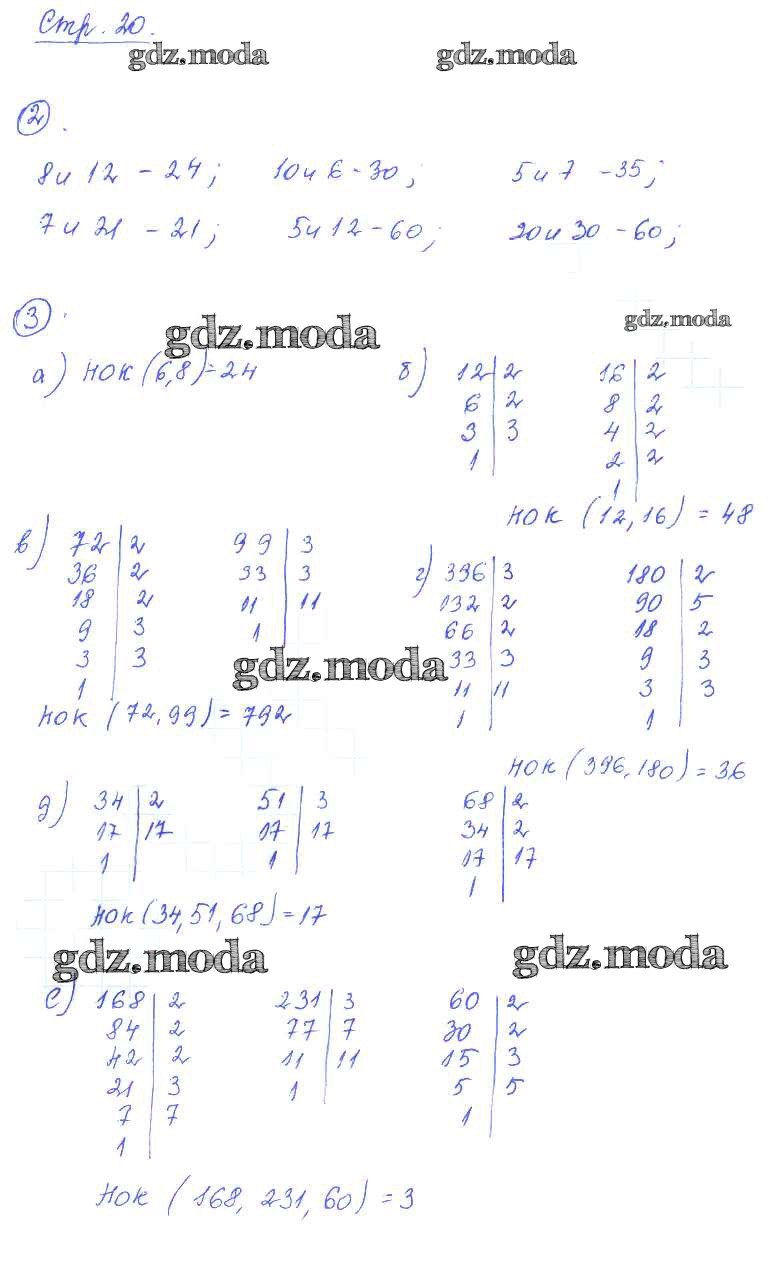 Стр. 20.
gdz.moda gdz.moda
2.
8 и 12 - 24; 10 и 6 - 30; 5 и 7 - 35;
7 и 21 - 21; 5 и 12 - 60; 20 и 30 - 60;
3.
gdz.moda gdz.moda
а) НОК (6,8) = 24
б) 12 | 2 16 | 2
6 | 2 8 | 2
3 | 3 4 | 2
1 | 2 | 2
1 |
НОК (12, 16) = 48
в) 72 | 2 99 | 3
36 | 2 33 | 3
18 | 2 11 | 11
9 | 3 1 |
3 | 3
1 |
gdz.moda
НОК (72, 99) = 792
г) 396 | 3 180 | 2
132 | 2 90 | 5
66 | 2 18 | 2
33 | 3 9 | 3
11 | 11 3 | 3
1 | 1 |
НОК (396, 180) = 36
д) 34 | 2 51 | 3 68 | 2
17 | 17 17 | 17 34 | 2
1 | 1 | 17 | 17
1 |
НОК (34, 51, 68) = 17
gdz.moda gdz.moda
е) 168 | 2 231 | 3 60 | 2
84 | 2 77 | 7 30 | 2
42 | 2 11 | 11 15 | 3
21 | 3 1 | 5 | 5
7 | 7 1 |
1 |
НОК (168, 231, 60) = 3